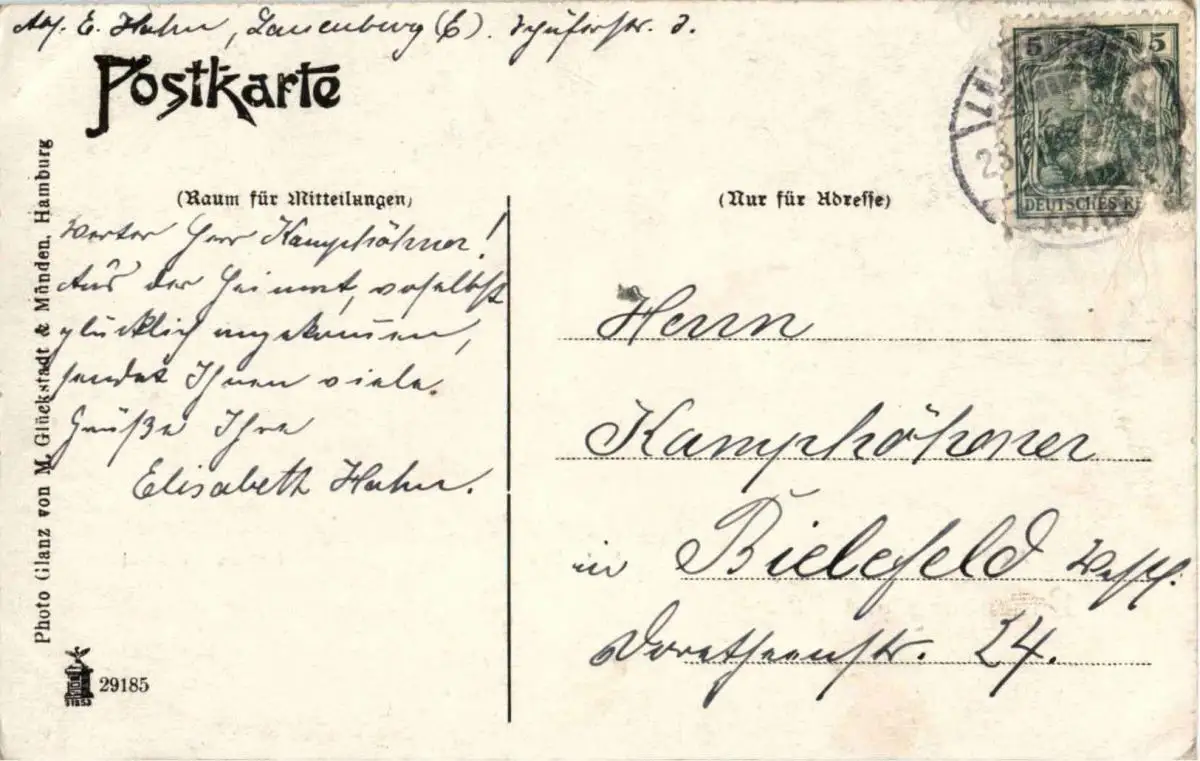 Abs. E. Hahn, Lauenburg (E). Schüferstr. 3.
Postkarte
(Raum für Mitteilungen)
Werter Herr Kamphöhner!
Aus der Heimat, woselbst
glücklich angekommen,
sendet Ihnen viele
Grüße Ihre
Elisabeth Hahn.
Photo Glanz von M. Glückstadt & Münden, Hamburg
29185
5 5
DEUTSCHES
23
(Nur für Adresse)
Herrn
Kamphöhner
in Bielefeld Westf.
Dorotheenstr. 24.